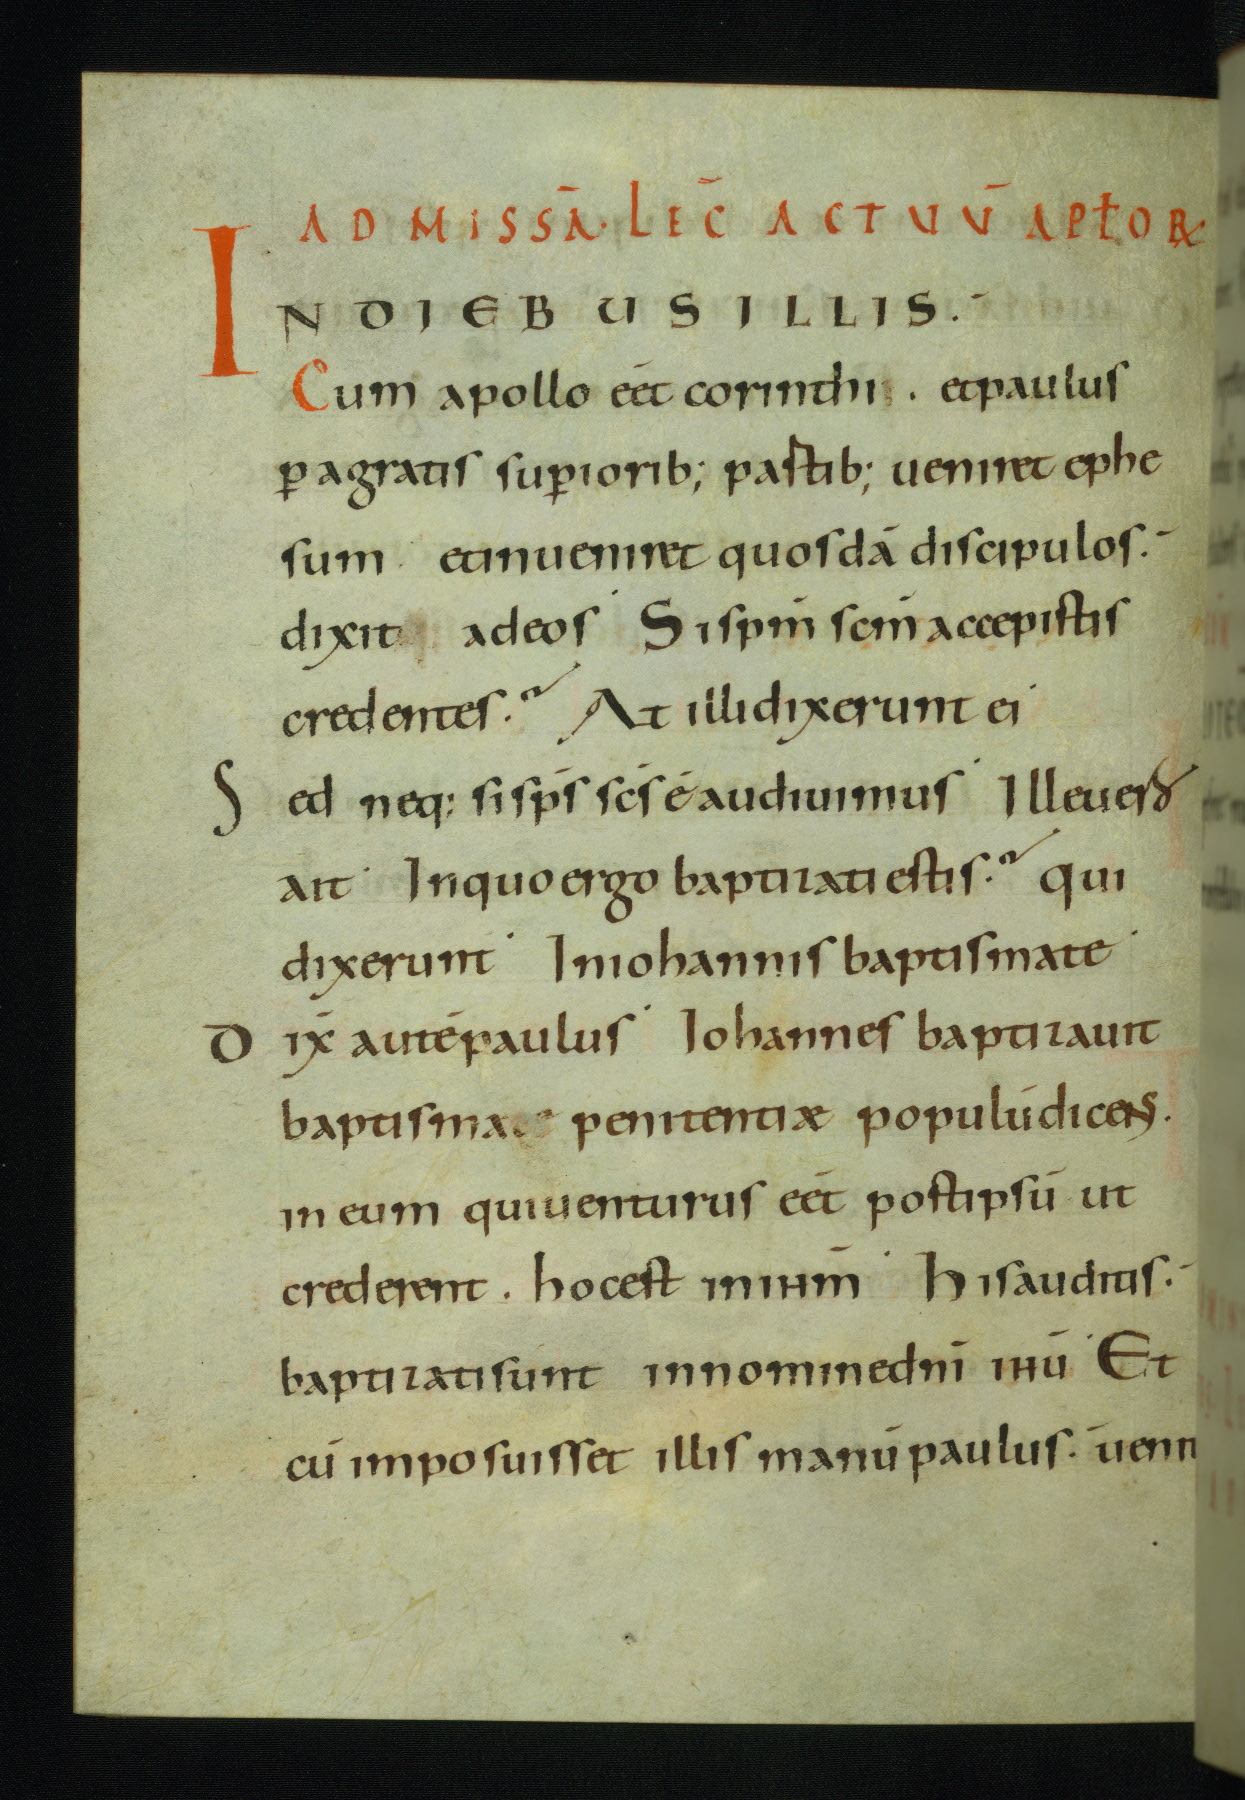 AD MISSĀ. LEC̄ ACTUŪ APƚOꝜ
IN DIEBUS ILLIS.
Cum apollo eēt corinthi . et paulus
ꝑagratis suꝑiorib; pastib; ueniret ephe
sum et inueniret quosdā discipulos.
dixit ad eos Si spm̄ scm̄ accepistis
credentes. At illi dixerunt ei
Sed neq; si sps̄ scs̄ ē audiuimus Ille uero
ait In quo ergo baptizati estis. qui
dixerunt In iohannis baptismate
Dix̄ autē paulus Iohannes baptizauit
baptismate penitentiæ populū dicens.
in eum qui uenturus eēt post ipsū ut
crederent . hoc est in ihm̄ His auditis.
baptizati sunt in nomine dnī ihū Et
cū imposuisset illis manū paulus. uenit